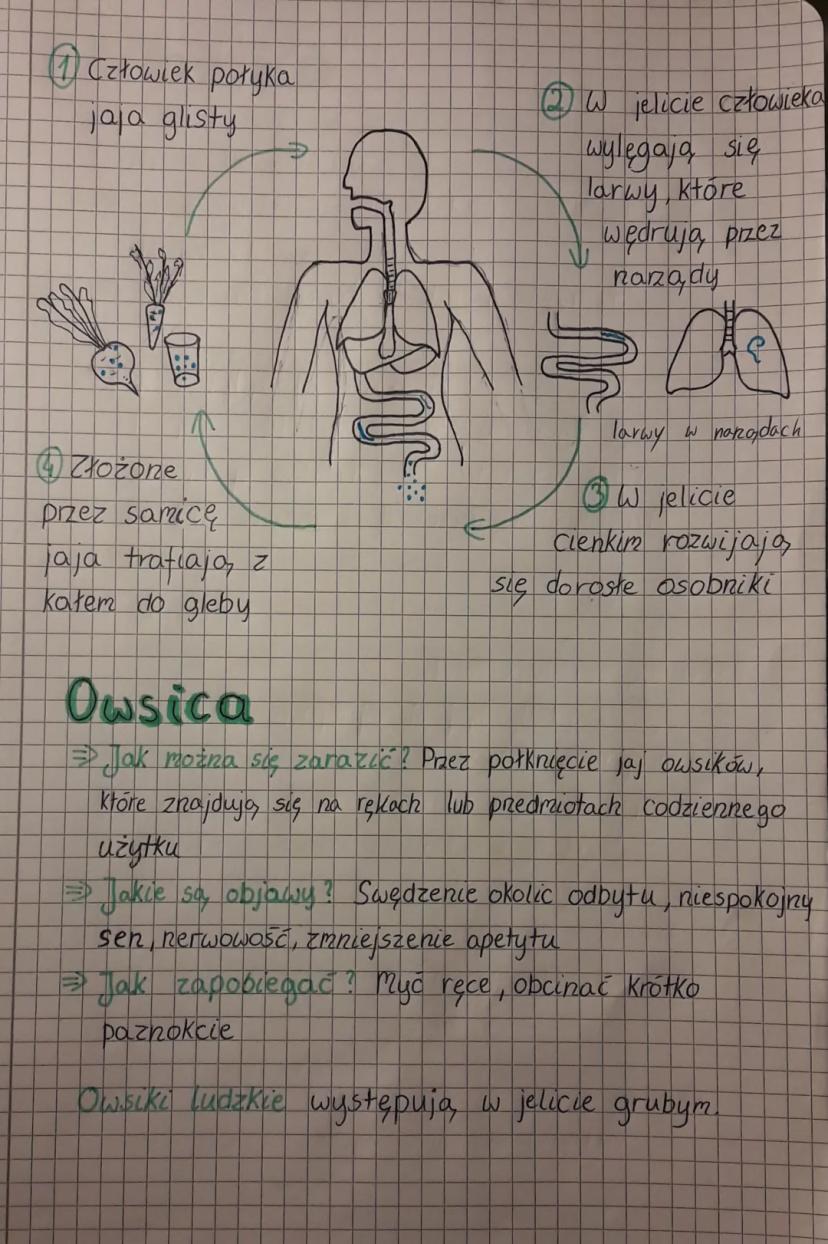 ① Człowiek połyka
jaja glisty
② W jelicie człowieka
wylęgają się
larwy, które
wędrują przez
narządy
larwy w narządach
③ W jelicie
cienkim rozwijają
się dorosłe osobniki
④ Złożone
przez samicę
jaja trafiają z
kałem do gleby
Owsica
⇒ Jak można się zarazić? Przez połknięcie jaj owsików,
które znajdują się na rękach lub przedmiotach codziennego
użytku
⇒ Jakie są objawy? Swędzenie okolic odbytu, niespokojny
sen, nerwowość, zmniejszenie apetytu
⇒ Jak zapobiegać? Myć ręce, obcinać krótko
paznokcie
Owsiki ludzkie występują w jelicie grubym.